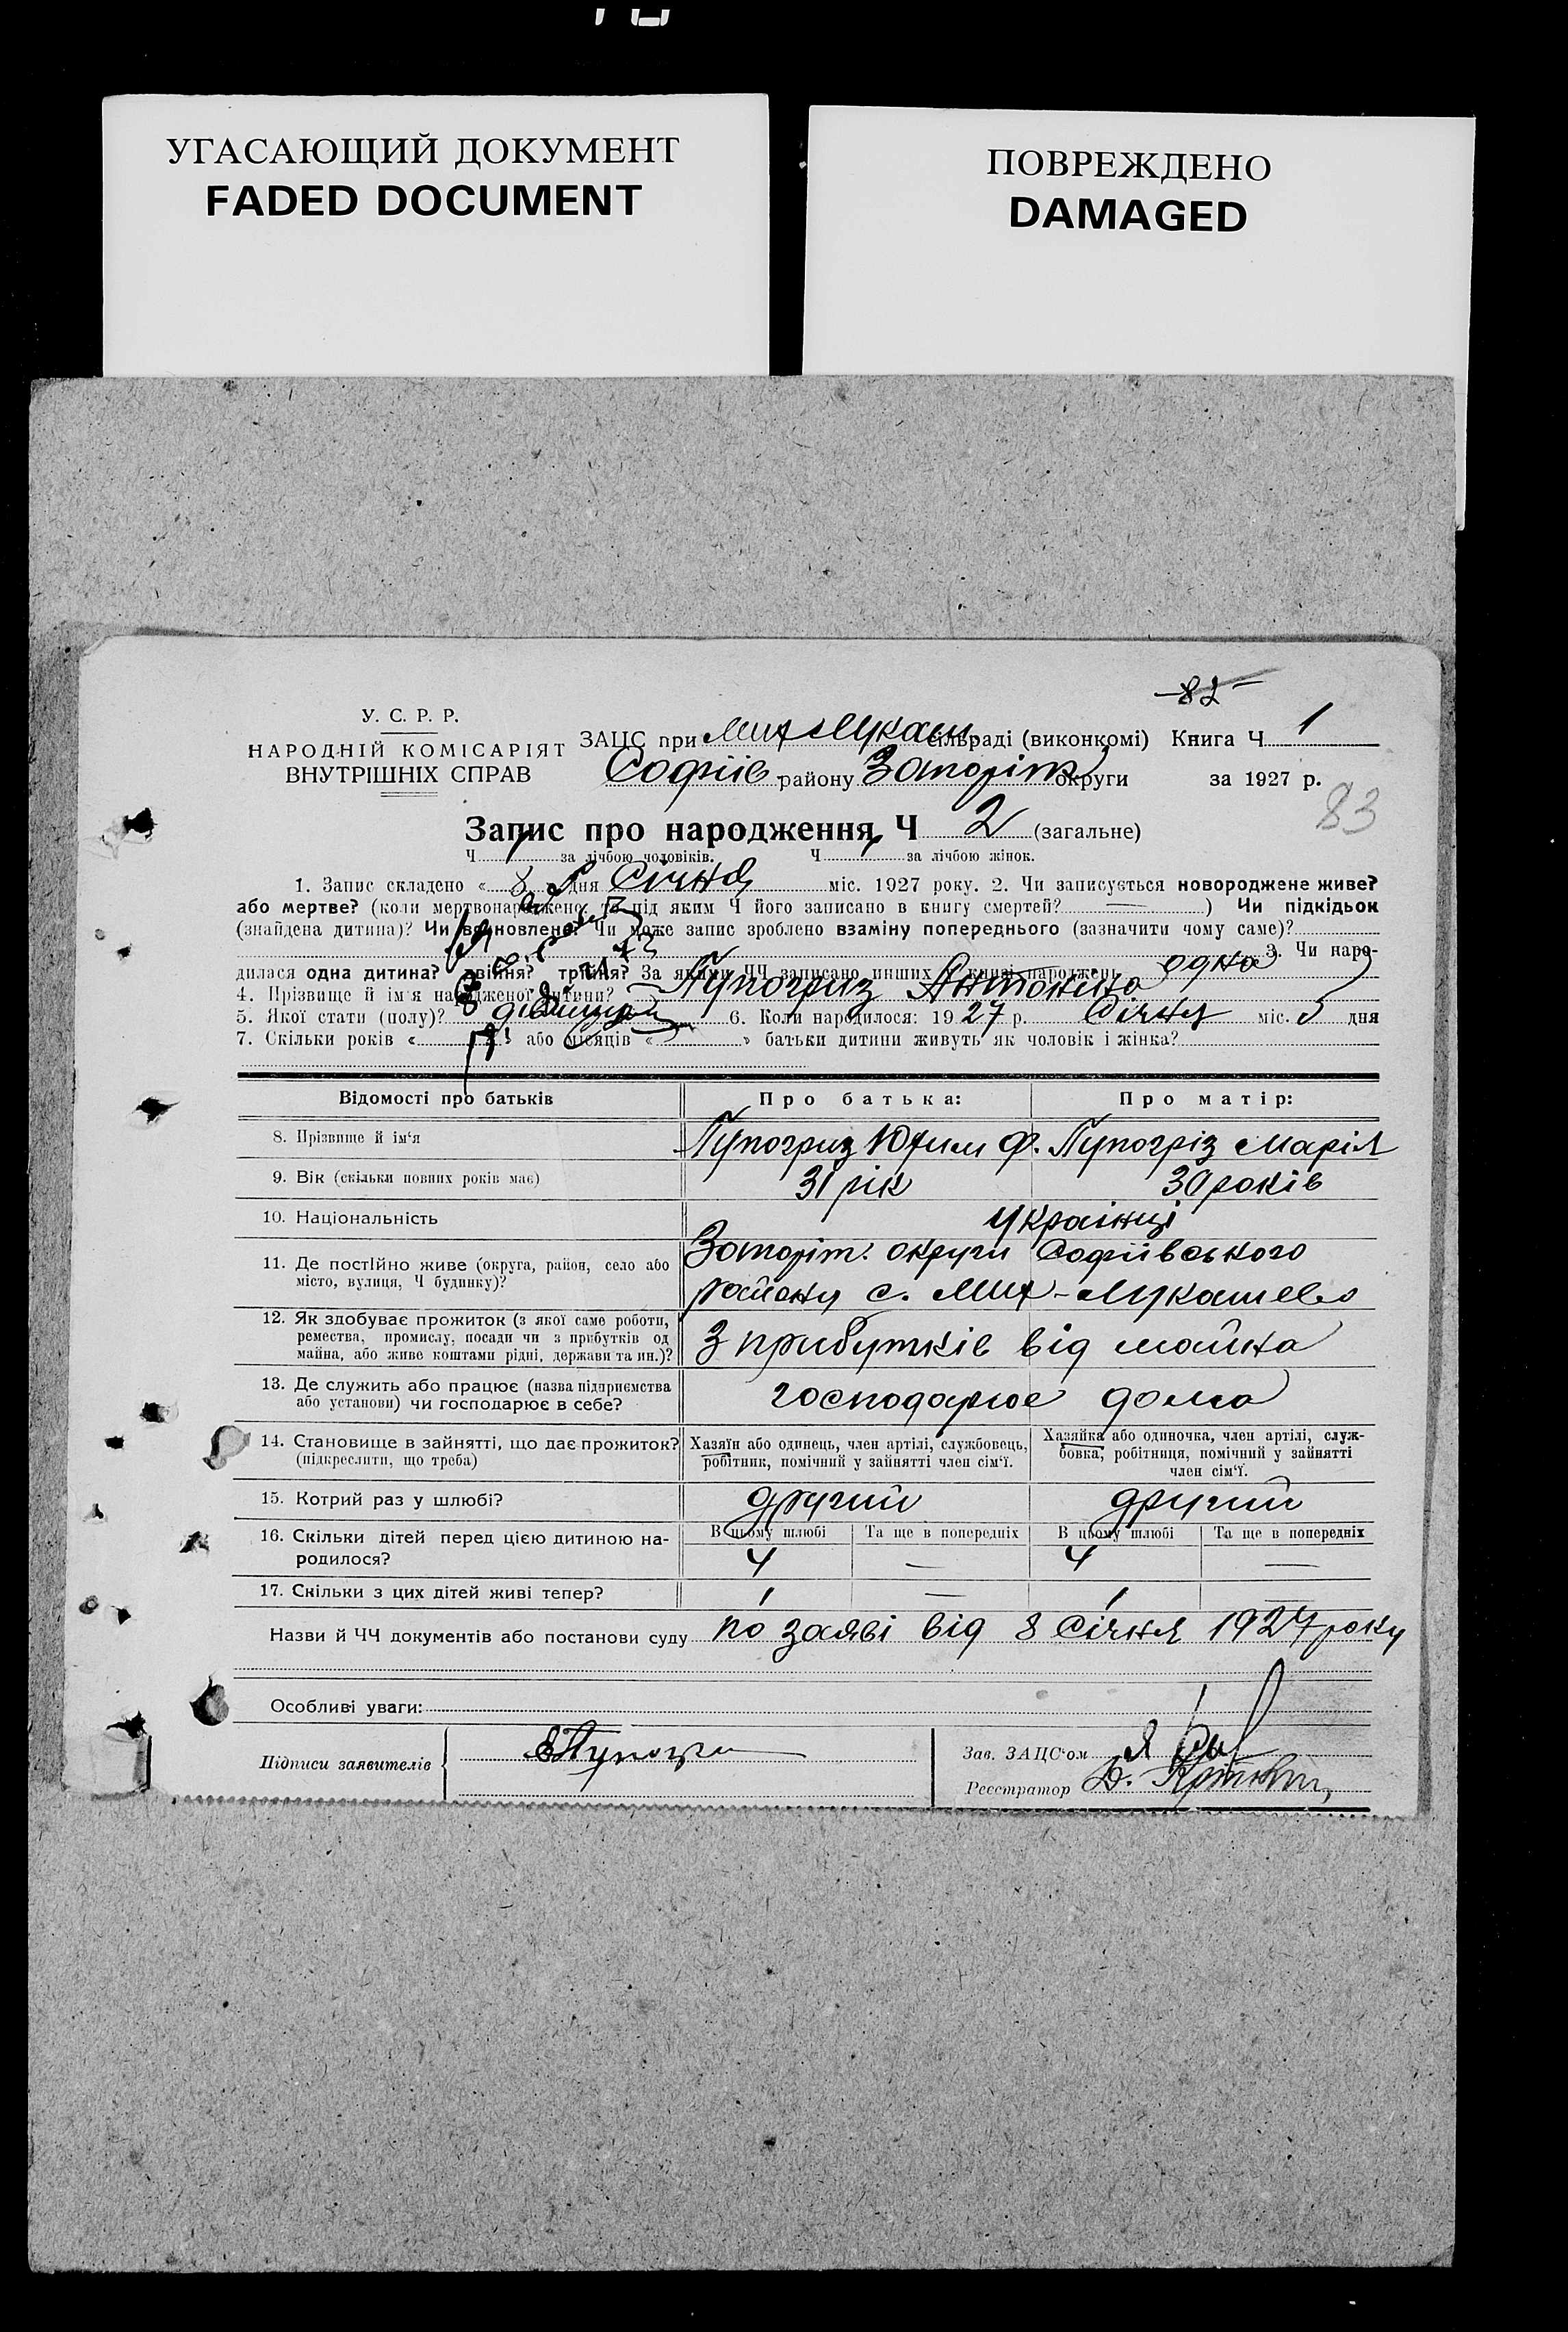 УГАСАЮЩИЙ ДОКУМЕНТ
FADED DOCUMENT
ПОВРЕЖДЕНО
DAMAGED
82
У. С. Р. Р.
НАРОДНІЙ КОМІСАРІЯТ
ВНУТРІШНІХ СПРАВ
ЗАЦС при Мих Лукаш. сільраді (виконкомі) Книга Ч 1
Софіїв. району Запоріж округи за 1927 р.
83
Запис про народження, Ч 2 (загальне)
Ч за лічбою чоловіків. Ч за лічбою жінок.
1. Запис складено « 8 дня Січня міс. 1927 року. 2. Чи записується новороджене живе?
або мертве? (коли мертвонароджено, то під яким Ч його записано в книгу смертей? — ) Чи підкідьок
(знайдена дитина)? Чи відновлено? Чи може запис зроблено взаміну попереднього (зазначити чому саме)?
3. Чи наро-
дилася одна дитина? двійня? трійня? За якими ЧЧ записано инших у книзі народжень одна
4. Прізвище й ім'я народженої дитини? Пупогриз Антоніна
5. Якої стати (полу)? 6. Коли народилося: 1927 р. Січня міс. 5 дня
7. Скільки років « » або місяців « » батьки дитини живуть як чоловік і жінка?
Відомості про батьків Про батька: Про матір:
8. Прізвище й ім'я Пупогриз Юхим Ф. Пупогріз Марія
9. Вік (скільки повних років має) 31 рік 30 років
10. Національність Українці
11. Де постійно живе (округа, район, село або місто, вулиця, Ч будинку)? Запоріж. округи Софіївського
району с. Мих-Лукашево
12. Як здобуває прожиток (з якої саме роботи,
ремества, промислу, посади чи з прибутків од
майна, або живе коштами рідні, держави та ин.)? З прибутків від майна
13. Де служить або працює (назва підприємства
або установи) чи господарює в себе? господарює дома
14. Становище в зайнятті, що дає прожиток?
(підкреслити, що треба)
Хазяїн або одинець, член артілі, службовець,
робітник, помічний у зайнятті член сім'ї.
Хазяйка або одиночка, член артілі, служ-
бовка, робітниця, помічний у зайнятті
член сім'ї.
15. Котрий раз у шлюбі? другий другий
16. Скільки дітей перед цією дитиною на-
родилося?
В цьому шлюбі Та ще в попередніх В цьому шлюбі Та ще в попередніх
4 — 4 —
17. Скільки з цих дітей живі тепер? 1 — 1 —
Назви й ЧЧ документів або постанови суду по заяві від 8 Січня 1927 року
Особливі уваги:
Підписи заявителів
Зав. ЗАЦС'ом
Реєстратор